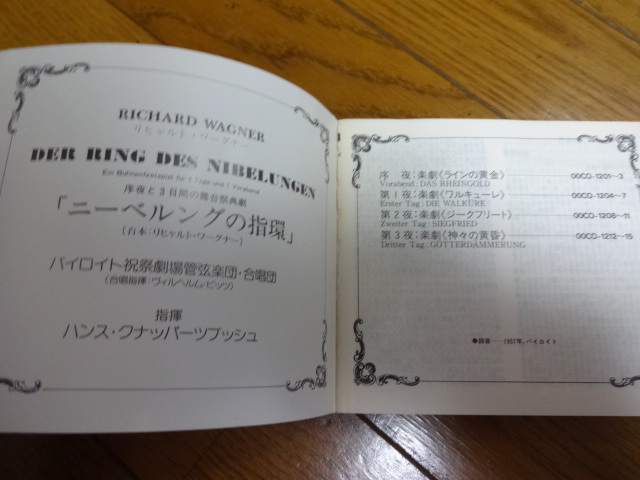 RICHARD WAGNER
リヒャルト・ワーグナー
DER RING DES NIBELUNGEN
Ein Bühnenfestspiel für 3 Tage und 1 Vorabend
序夜と3日間の舞台祭典劇
「ニーベルングの指環」
(台本:リヒャルト・ワーグナー)
バイロイト祝祭劇場管弦楽団・合唱団
(合唱指揮:ヴィルヘルム・ピッツ)
指揮
ハンス・クナッパーツブッシュ
序 夜:楽劇《ラインの黄金》 00CD-1201~3
Vorabend: DAS RHEINGOLD
第1夜:楽劇《ワルキューレ》 00CD-1204~7
Erster Tag: DIE WALKÜRE
第2夜:楽劇《ジークフリート》 00CD-1208~11
Zweiter Tag: SIEGFRIED
第3夜:楽劇《神々の黄昏》 00CD-1212~15
Dritter Tag: GÖTTERDÄMMERUNG
●録音――1957年,バイロイト